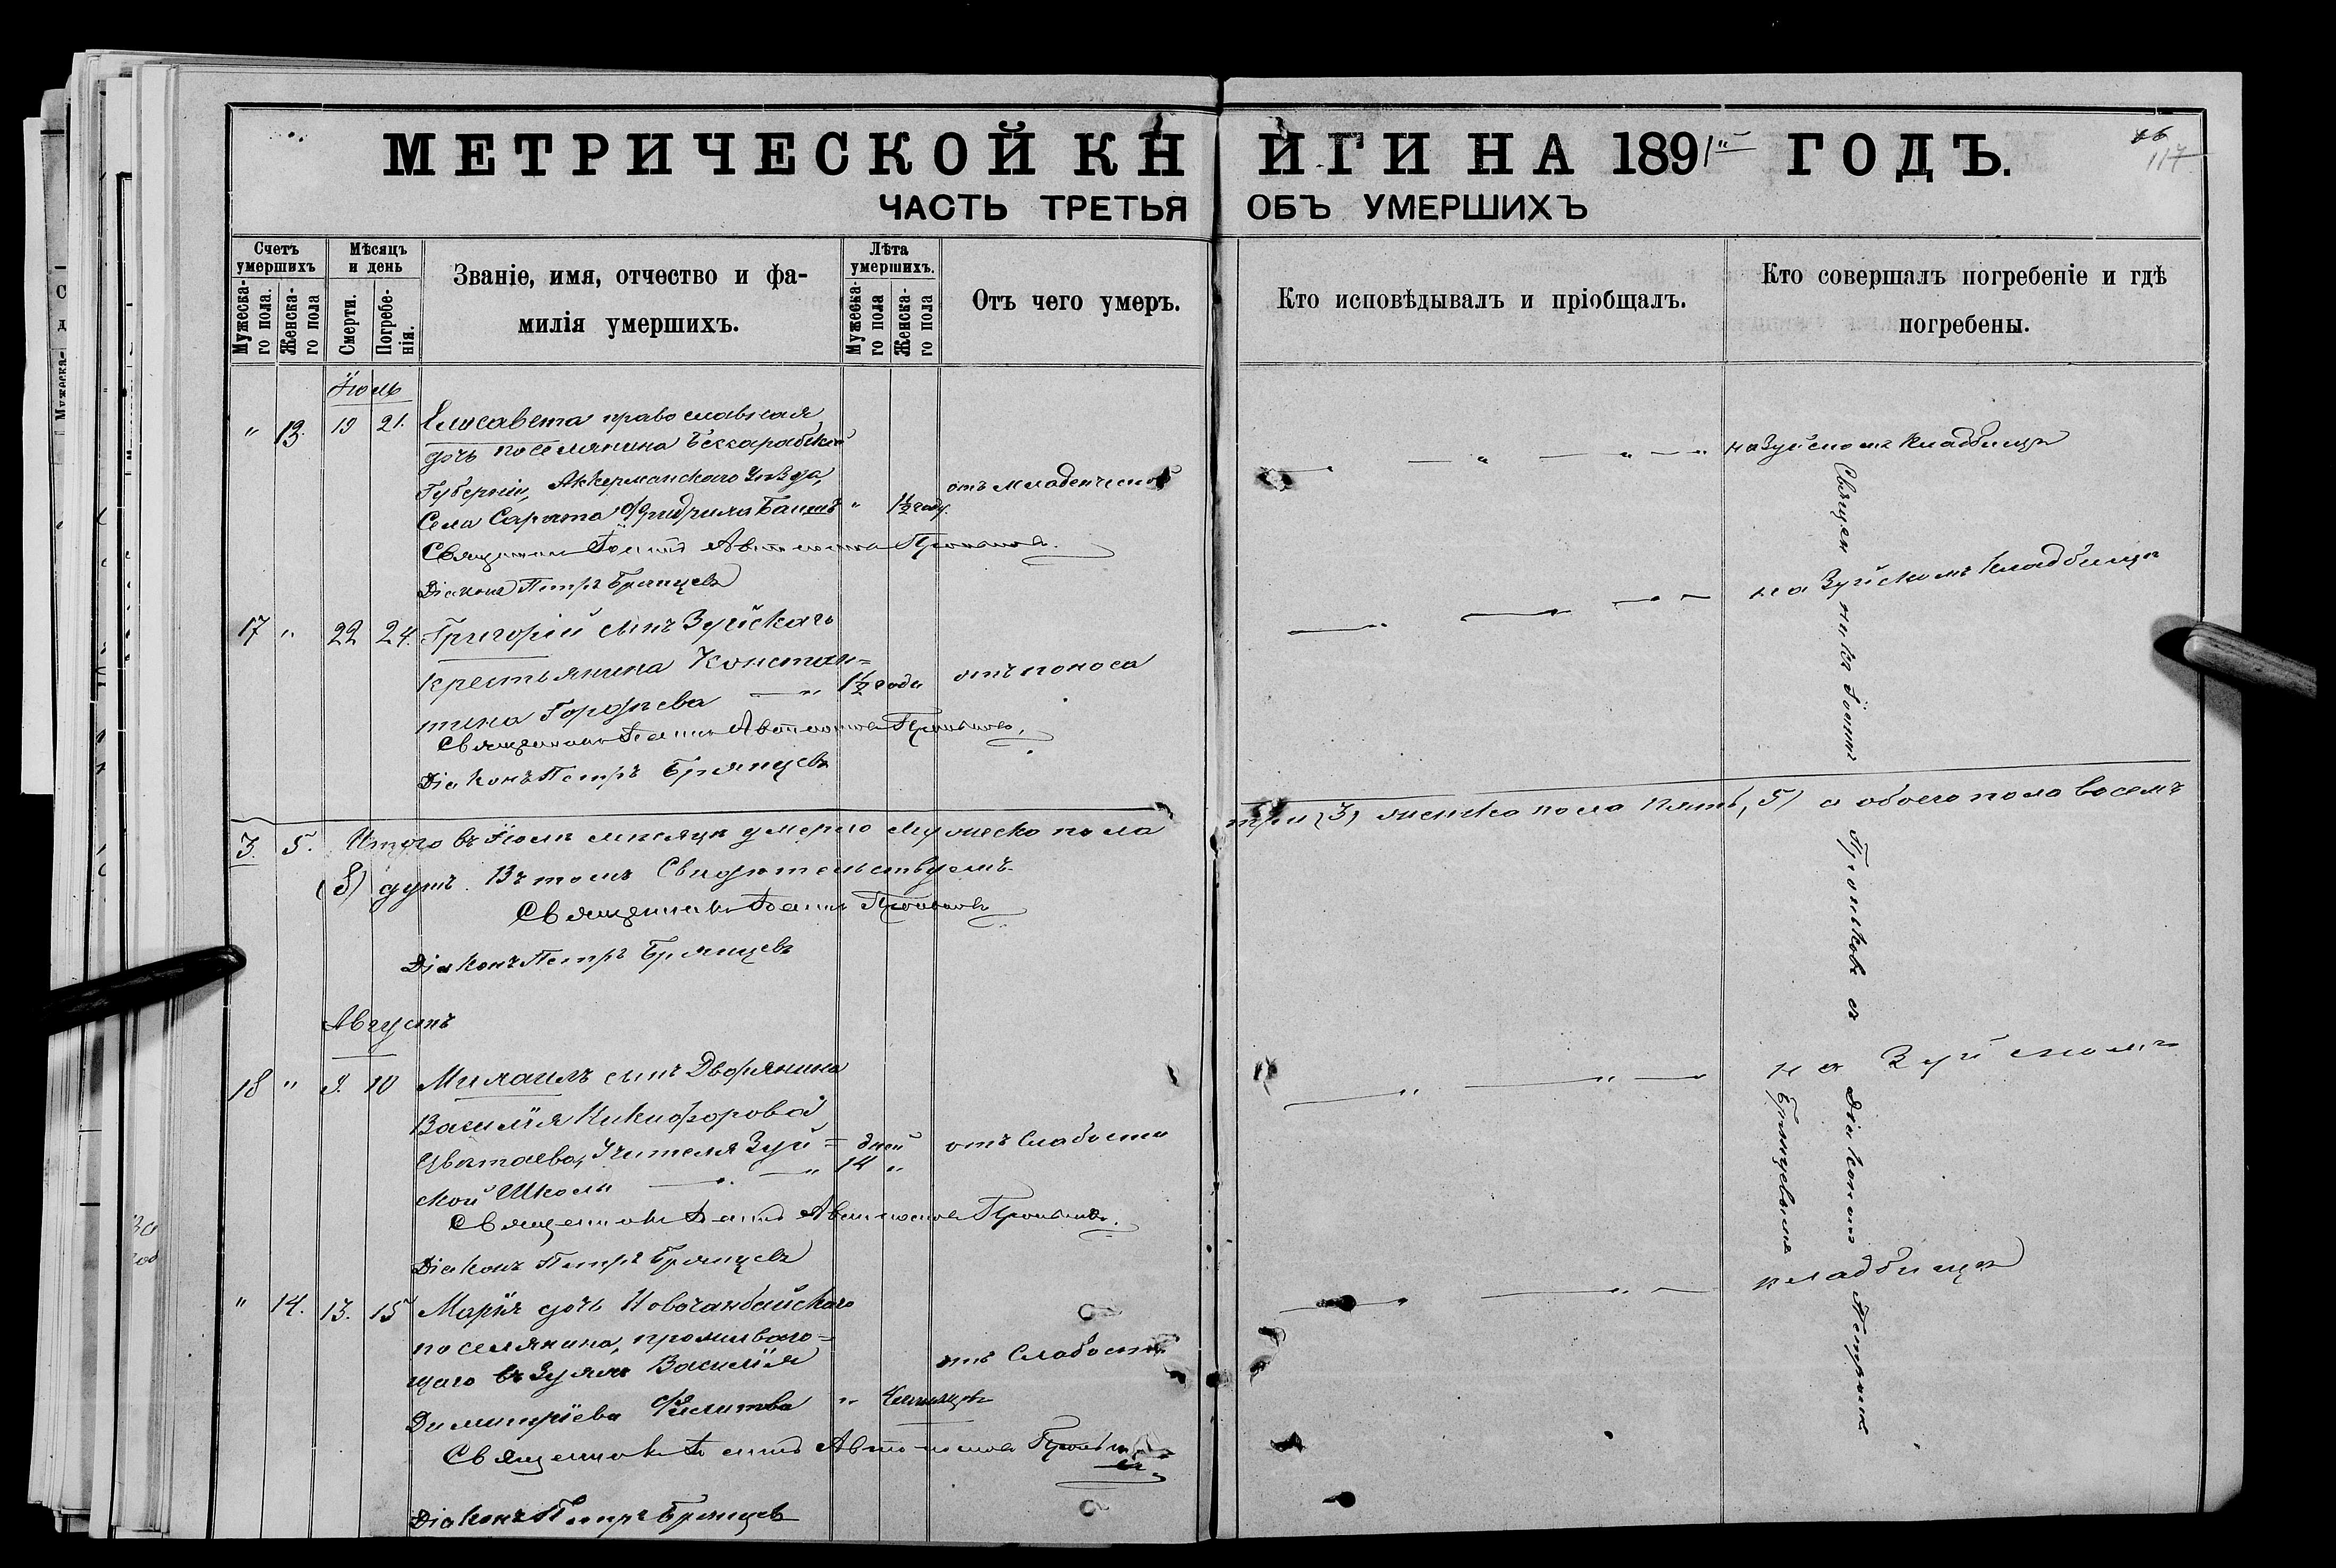 МЕТРИЧЕСКОЙ КНИГИ НА 1891 ГОДЪ.
117
ЧАСТЬ ТРЕТЬЯ ОБЪ УМЕРШИХЪ
Счетъ умершихъ
Мужеска-го пола.
Женска-го пола
Мѣсяцъ и день
Смерти.
Погребе-нія.
Званіе, имя, отчество и фа-
милія умершихъ.
Лѣта умершихъ.
Мужеска-го пола
Женска-го пола
Отъ чего умеръ.
Кто исповѣдывалъ и пріобщалъ.
Кто совершалъ погребеніе и гдѣ
погребены.
Іюль
" 13. 19 21. Елисавета православная
дочь поселянина Бессарабской
Губерніи, Аккерманскаго Уѣзда,
Села Сарата Фридриха " 1½ году. отъ младенческой
на Зуйскомъ кладбищѣ
Священникъ Іоаннъ Проньковъ.
Діаконъ Петръ Брянцевъ
17 " 22 24. Григорій сынъ Зуйскаго
крестьянина Констан=
тина Гордѣева 1½ года отъ поноса
на Зуйскомъ кладбищѣ
Священникъ Іоаннъ Проньковъ.
Діаконъ Петръ Брянцевъ
3. 5. Итого въ Іюлѣ мѣсяцѣ умерло мужеско пола три (3) женско пола пять, 5) а обоего пола восемь
(8) душъ. Въ томъ Свидѣтельствуемъ.
Священникъ Іоаннъ Проньковъ
Діаконъ Петръ Брянцевъ
Августъ
18 " 9. 10 Михаилъ сынъ Дворянина
Василія Никифорова
Цвѣтаева, Учителя Зуй= дней отъ Слабости
ской Школы " 14 "
на Зуйскомъ
Священникъ Іоаннъ Проньковъ.
Діаконъ Петръ Брянцевъ
кладбищѣ
" 14. 13. 15 Марія дочь Новочанбайскаго
поселянина, проживаю=
щаго въ Зуяхъ Василія отъ Слабости
Димитріева "
Священникъ Іоаннъ
Діаконъ Петръ Брянцевъ
Священника Іоаннъ Проньковъ съ Діакономъ Петромъ
Брянцевымъ